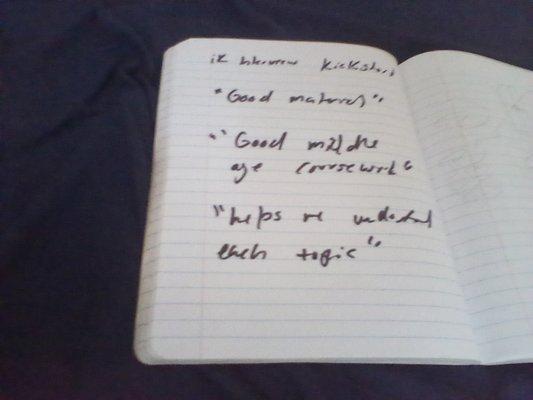 ik Interview Kickstart
"Good material"
"Good middle
age coursework"
"helps me understand
each topic"